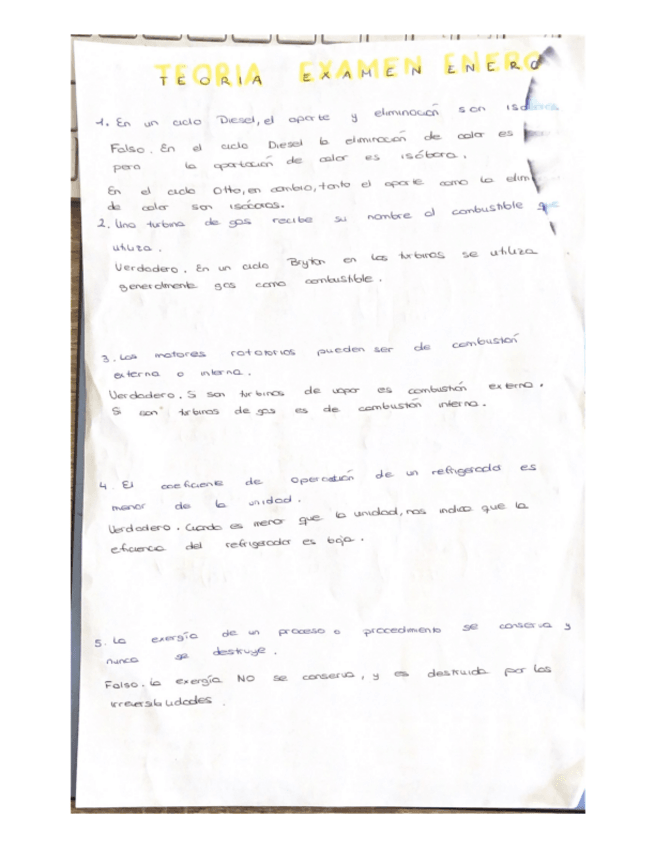 TEORIA EXAMEN ENERO
1. En un ciclo Diesel, el aporte y eliminación son
Falso. En el ciclo Diesel la eliminación de calor es
pero la aportación de calor es isóbara.
En el ciclo Otto, en cambio, tanto el aporte como la elim
de calor son isócoras.
2. Una turbina de gas recibe su nombre al combustible que
utiliza.
Verdadero. En un ciclo Bryton en las turbinas se utiliza
generalmente gas como combustible.
3. Los motores rotatorios pueden ser de combustión
externa o interna.
Verdadero. Si son turbinas de vapor es combustión externa.
Si son turbinas de gas es de combustión interna.
4. El coeficiente de operación de un refrigerador es
menor de la unidad.
Verdadero. Cuando es menor que la unidad, nos indica que la
eficiencia del refrigerador es baja.
5. La exergía de un proceso o procedimiento se conserva y
nunca se destruye.
Falso. La exergía NO se conserva, y es destruida por las
irreversibilidades.